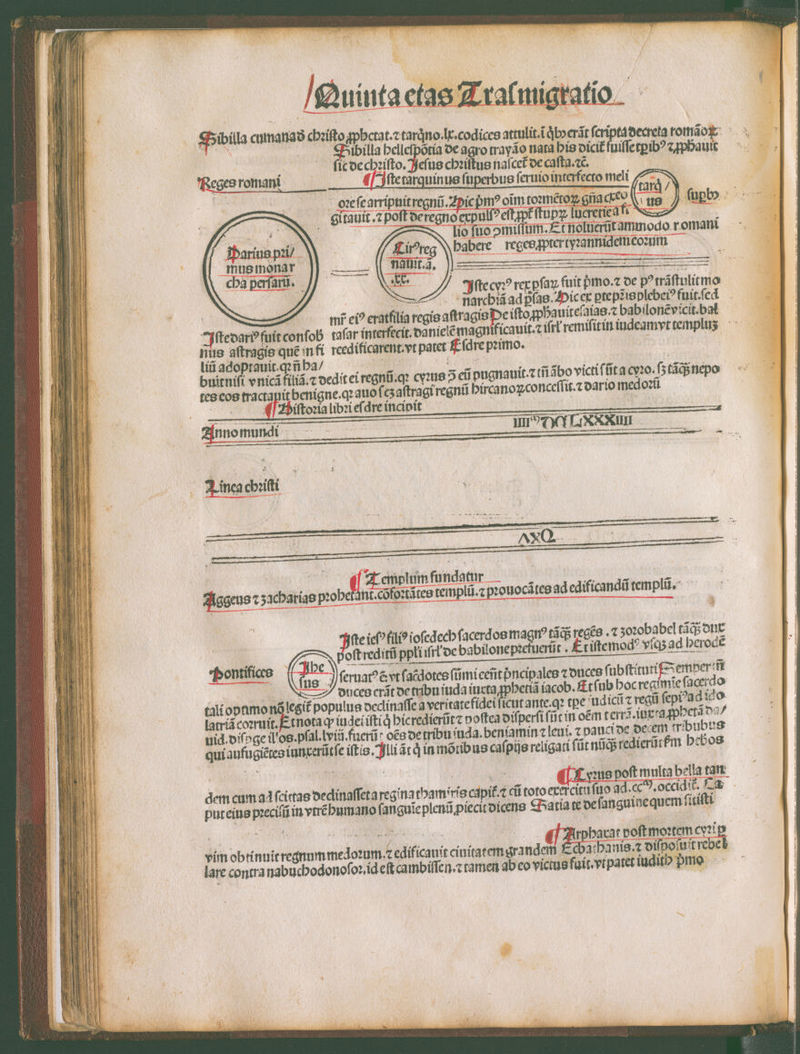 Quinta etas Traſmigratio
Sibilla cumanaꝺ chriſto ꝓphetat. ⁊ tarq̇no .lx. codices attulit. ī q̇bꝰ erāt ſcripta decreta romāoꝝ
Sibilla helleſpōtia de agro troyāo nata his dicit̄ fuiſſe tꝑibꝰ ⁊ ꝓphauit
ſic de chriſto. Jeſus chriſtus naſcet̄ de caſta. ⁊c̄.
Reges romani
¶ Iſte tarquinus ſuperbus ſeruio interfecto meli
ore ſe arripuit regnū. Hic p̄mꝰ oīm tormētoꝝ gn̄a
tarq̇/
us
ſuꝑbꝰ
gitauit. ⁊ poſt de regno expulſꝰ eſt, ꝓpt̄ ſtupꝝ lucretie a
lio ſuo ꝯmiſſum. Et noluerūt ammodo romani
habere reges, ꝓpter tyrannidem eorum
Darius pri/
mus monar
cha perſarū.
Cirꝰ reg
nauit. ā.
.xx.
Iſte cyrꝰ rex ꝑſaꝝ fuit p̄mo. ⁊ de pꝰ trāſtulit mo
narchiā ad ꝑſas. Hic ex ꝑte pr̄is plebeiꝰ fuit. ſed
mr̄ eiꝰ erat filia regis aſtragis De iſto, ꝓphauit eſaias. ⁊ babilonē vicit. bal
Iſte dariꝰ fuit conſob
taſar interfecit. danielē magnificauit. ⁊ iſrl̄ remiſit in iudeam vt templuꝫ
nus aſtragis quē in fi
reedificarent. vt patet Eſdre primo.
liū adoptauit. qꝛ n̄ ha/
buit niſi vnicā filiā. ⁊ dedit ei regnū. qꝛ cyrus ꝯ eū pugnauit. ⁊ tn̄ ābo victi ſūt a cyro. ſꝫ tāq̄ꝫ nepo
tes eos tractauit benigne. qꝛ auo ſcꝫ aſtragi regnū hircanoꝝ conceſſit. ⁊ dario medorū
¶ Hiſtoria libri eſdre incipit
Anno mundi
Linea chriſti
¶ Templum fundatur
Aggeus ⁊ zacharias prophetant. cōfortātes templū. ⁊ prouocātes ad edificandū templū.
Iſte ieſꝰ filiꝰ ioſedech ſacerdos magnꝰ tāq̄ꝫ regēs. ⁊ zorobabel tāq̄ꝫ dux
poſt reditū ppl̄i iſrl̄ de babilone prefuerūt. Et iſte modꝰ vſqꝫ ad herodē
Pontifices
Jhe
ſus
ſeruatꝰ ē vt ſac̄dotes ſūmi eēnt p̄ncipales ⁊ duces ſubſtituti Semper n̄
duces erāt de tribu iuda iuxta, ꝓphetiā iacob. Et ſub hoc regimīe ſacerdo
tali optimo nō legit̄ populus declinaſſe a veritate fidei ſicut ante. qꝛ tp̄e iudicū ⁊ regū ſepiꝰ ad ido
latriā corruit. Et nota ꝙ iudei iſti q̇ hic redierūt ⁊ poſtea diſperſi ſūt in oēm terrā. iuxta ꝓphetā da/
uid. diſꝑge illos. pſal. lviii. fuerūt oēs de tribu iuda. beniamin ⁊ leui. ⁊ pauci de decem tribubus
qui aufugiētes iunxerūt ſe iſtis. Illi āt q̇ in mōtibus caſpijs religati ſūt nūq̄ꝫ redierūt ſm hebꝛos
¶ Cyrus poſt multa bella tan
dem cum ad ſcittas declinaſſet a regina thamiris capit̄. ⁊ cū toto exercitu ſuo ad .ccᵐ. occidit̄. Ca
put eius preciſū in vtrē humano ſanguīe plenū, ꝓiecit dicens Satia te de ſanguine quem ſitiſti
¶ Arphaxat poſt mortem cyri ꝑ
vim obtinuit regnum medorum. ⁊ edificauit ciuitatem grandem Ecbathanis. ⁊ diſpoſuit rebel
lare contra nabuchodonoſor, id eſt cambiſſen. ⁊ tamen ab eo victus fuit. vt patet iudith p̄mo